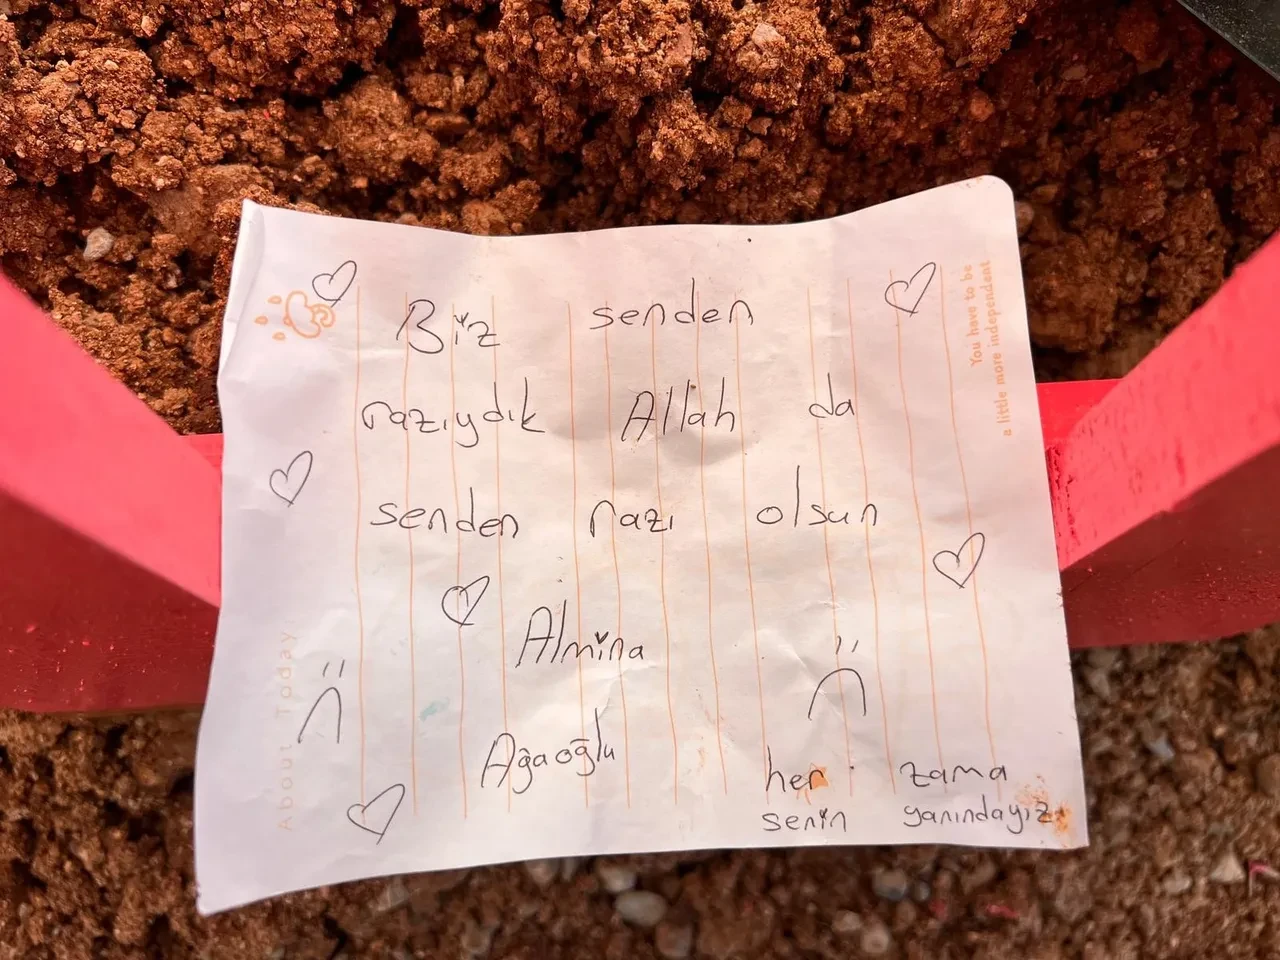 Biz senden
razıydık Allah da
senden razı olsun
Almina
Ağaoğlu
her zama
senin yanındayız
You have to be
a little more independent
About Today